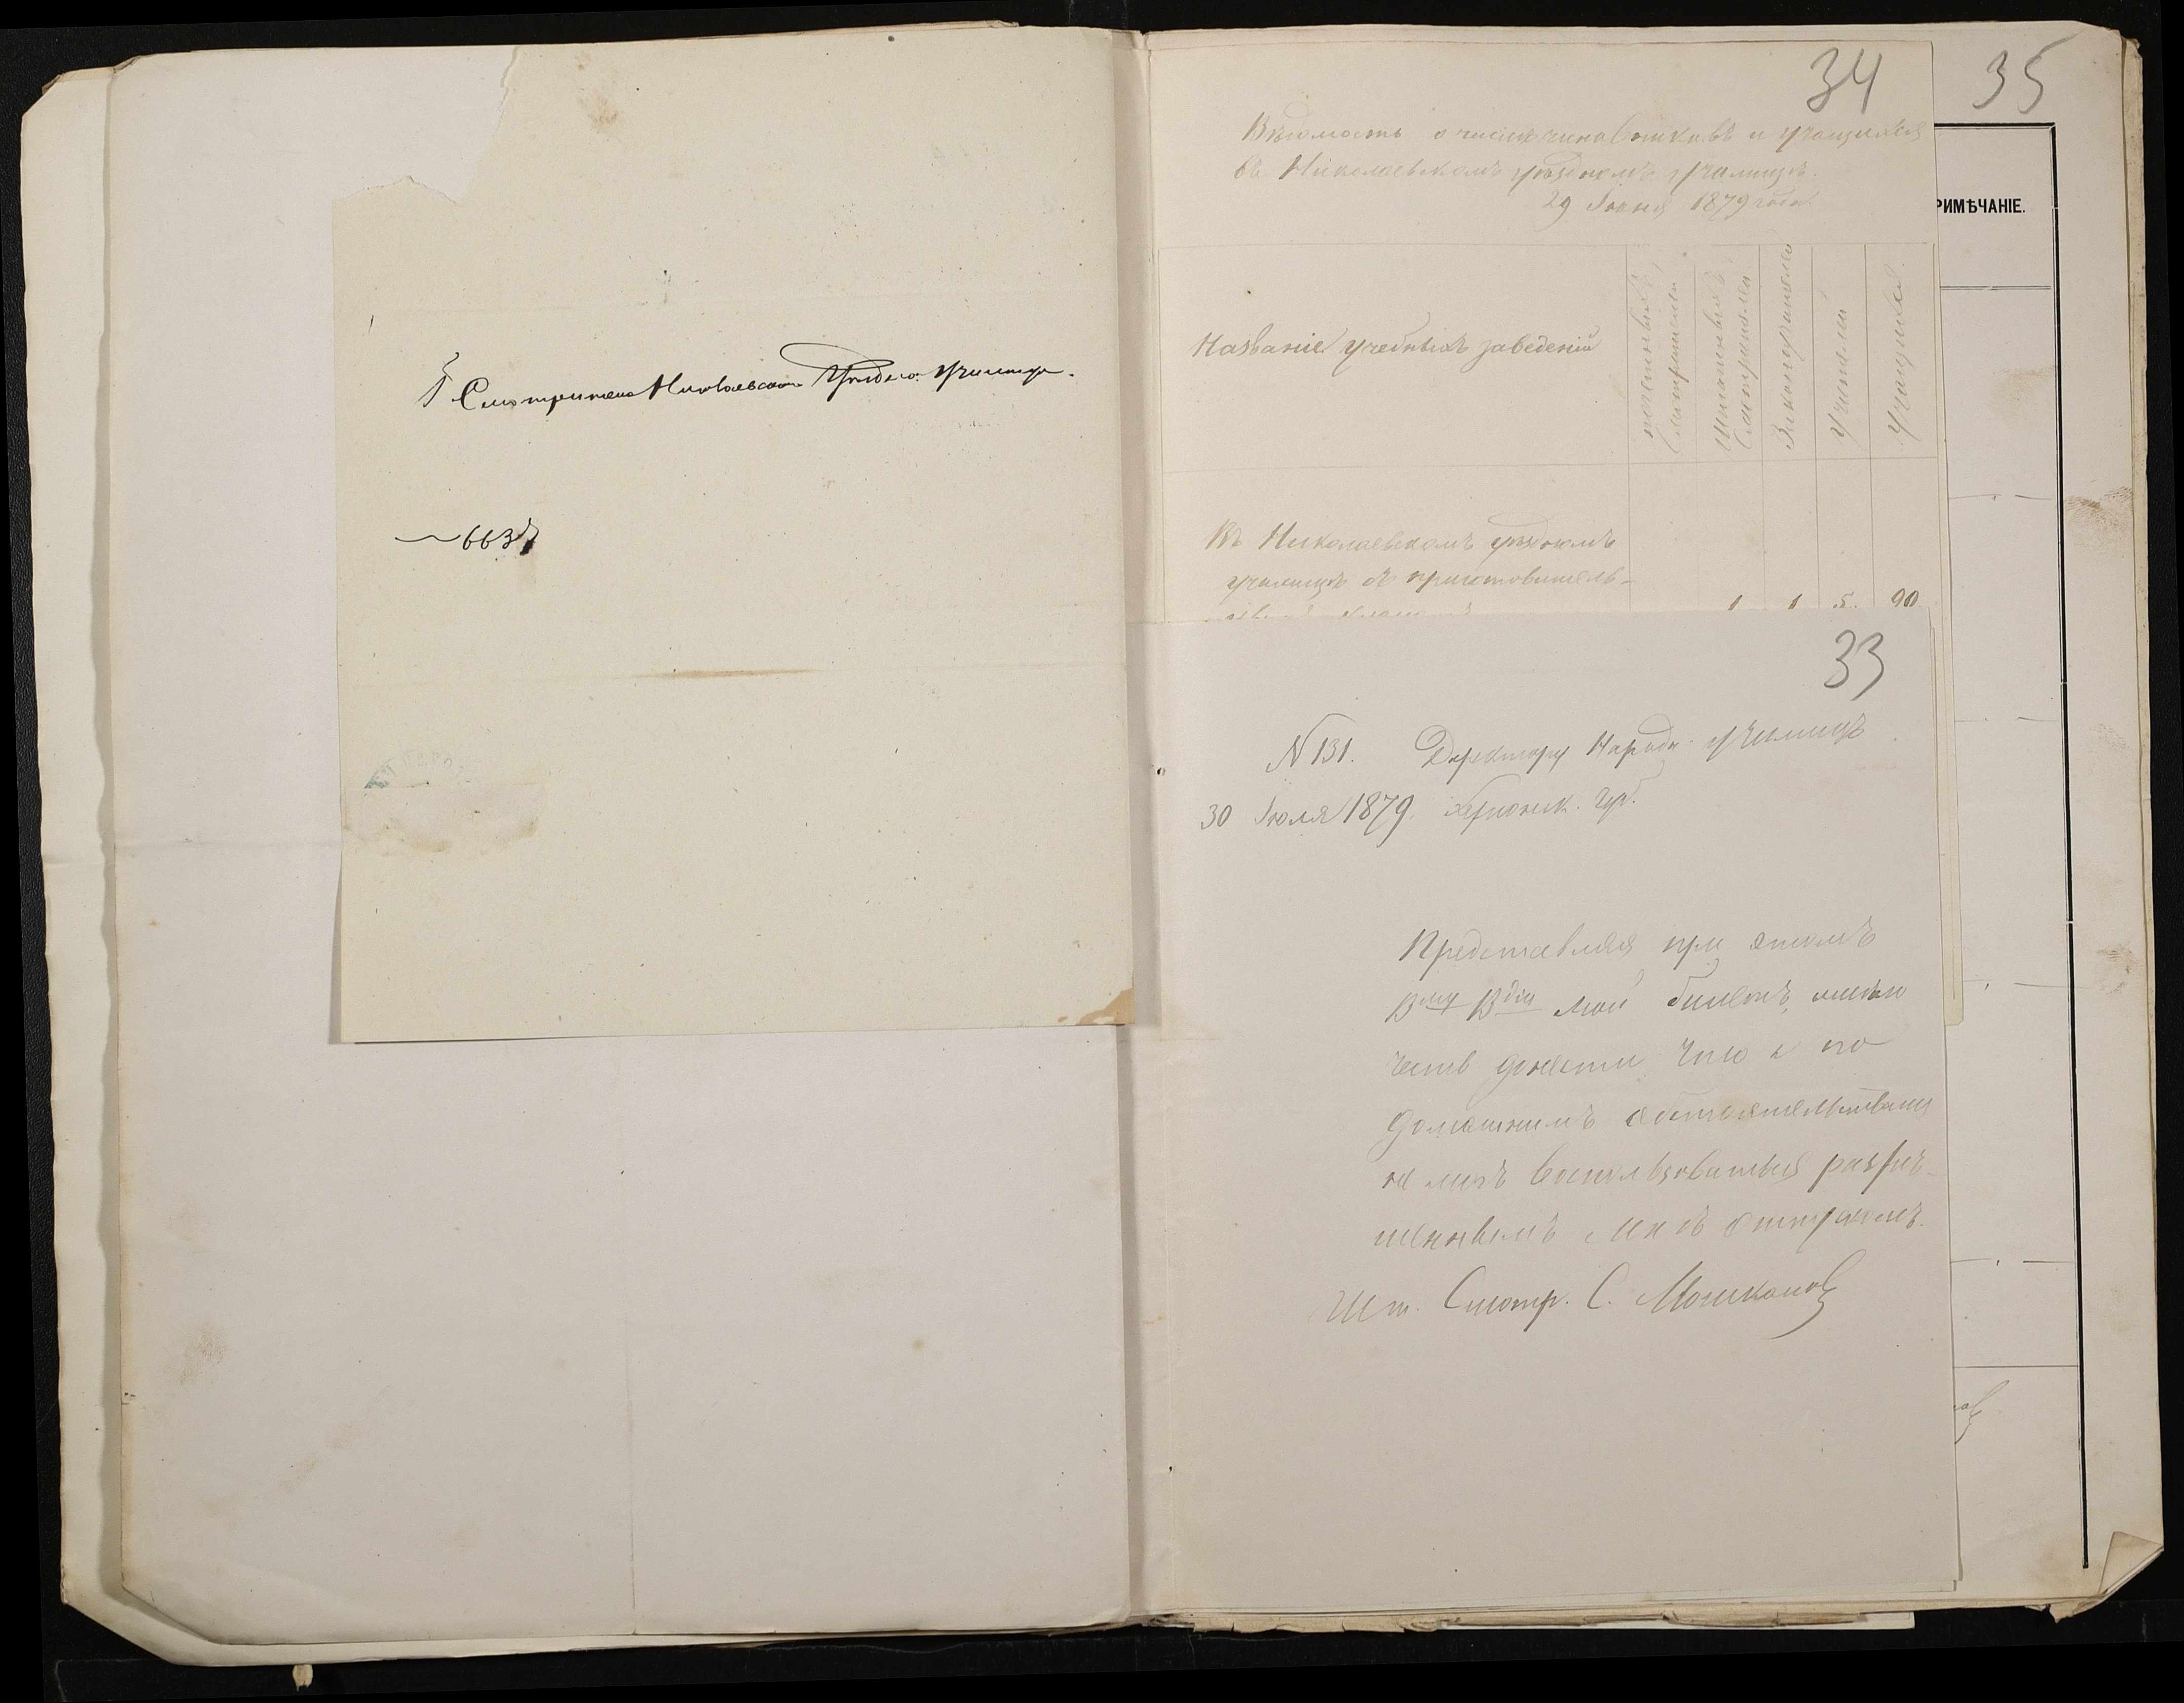 Г. Смотрителю Николаевскаго Уѣзднаго Училища.
663
34
35
Вѣдомость о числѣ чиновниковъ и учащихся
въ Николаевскомъ уѣздномъ училищѣ.
29 Іюня 1879 года.
РИМѢЧАНІЕ.
Названіе учебныхъ заведеній
почетныхъ смотрителей
Штатныхъ смотрителей
Законоучителей
Учителей
Учащихся
Въ Николаевскомъ уѣздномъ
училищѣ съ приготовитель-
1 1 5. 90
33
N 131. Директору Народн. училищъ
30 Іюля 1879. Херсонск. губ.
Представляя при этомъ
Вму Вдію мой билетъ, имѣю
честь донести что я по
домашнимъ обстоятельствамъ
не могъ воспользоваться разрѣ-
шеннымъ мнѣ отпускомъ.
Шт. Смотр. С.